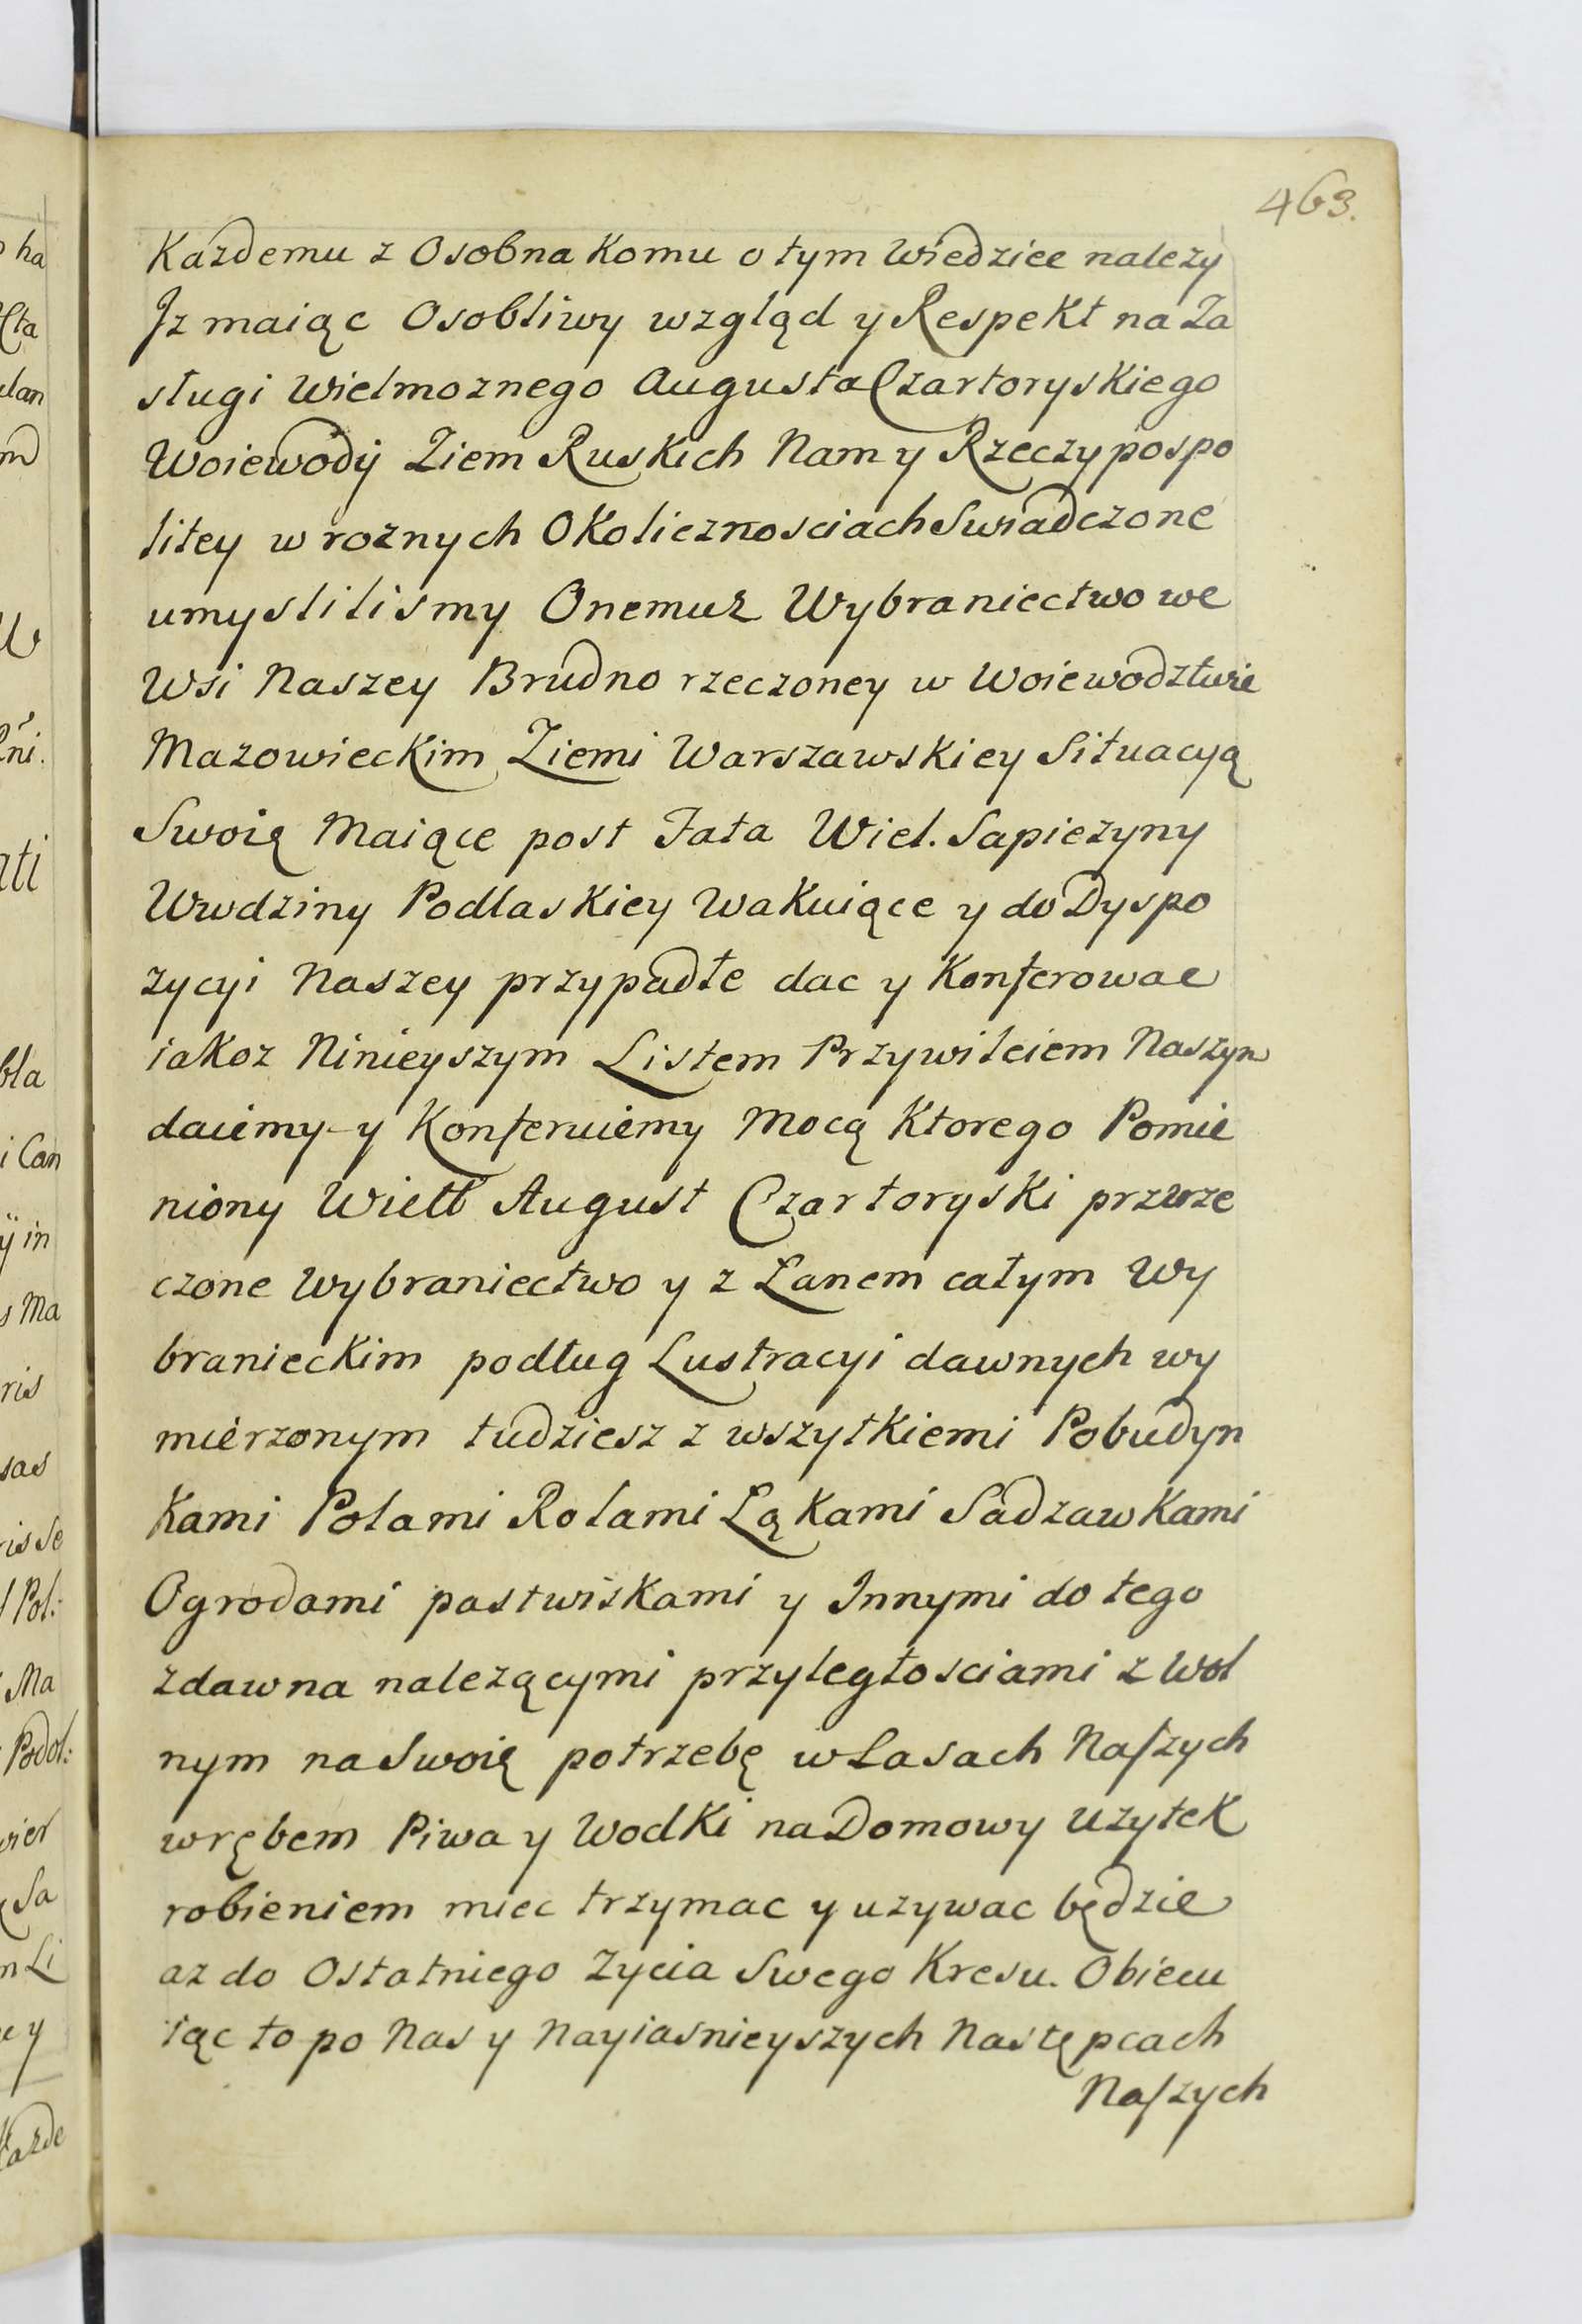 463.
Kazdemu z Osobna Komu o tym Wiedziec nalezy
Jz maiąc Osobliwy wzgląd y Respekt na Za
sługi Wielmoznego Augusta Czartoryskiego
Woiewody Ziem Ruskich Nam y Rzeczypospo
litey w roznych Okolicznosciach Swiadczone
umyslilismy Onemuz Wybraniectwo we
Wsi Naszey Brudno rzeczoney w Woiewodztwie
Mazowieckim Ziemi Warszawskiey Situacyą
Swoię Maiące post Fata Wiel. Sapiezyny
Wwdziny Podlaskiey Wakuiące y do Dyspo
zycyi Naszey przypadłe dac y Konferowac
iakoz Ninieyszym Listem Przywileiem Naszym
daiemy y Konferuiemy Mocą Ktorego Pomie
niony Wiel August Czartoryski przerze
czone Wybraniectwo y z Łanem całym Wy
branieckim podług Lustracyi dawnych wy
mierzonym tudziesz z wszytkiemi Pobudyn
Kami Polami Rolami Łąkami Sadzawkami
Ogrodami pastwiskami y Innymi do tego
zdawna nalezącymi przyległosciami z Wol
nym na Swoię potrzebę w Lasach Naszych
wrębem Piwa y Wodki na Domowy Uzytek
robieniem miec trzymac y uzywac będzie
az do Ostatniego Zycia Swego Kresu. Obiecu
iąc to po Nas y Nayiasnieyszych Następcach
Naszych